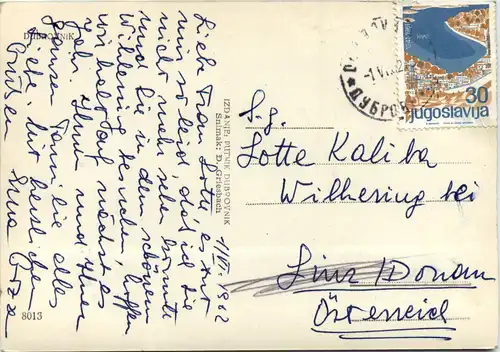 DUBROVNIK
1/VI. 1962
Liebe Frau Lotte, es tut
mir so leid, daß ich Sie
nicht mehr sehen konnte
und Sie in dem schönen
Wilhering besuchen, hoffen
wir halt auf nächstes
Jahr. Ihnen und Ihrer
ganzen Familie alles
Liebe, mit herzlichen
Grüßen
8013
IZDANJE: PUTNIK DUBROVNIK
Snimak: D. Griesbach
S.g.
Lotte Kaliba
Wilhering bei
Linz/Donau
Österreich
30
jugoslavija